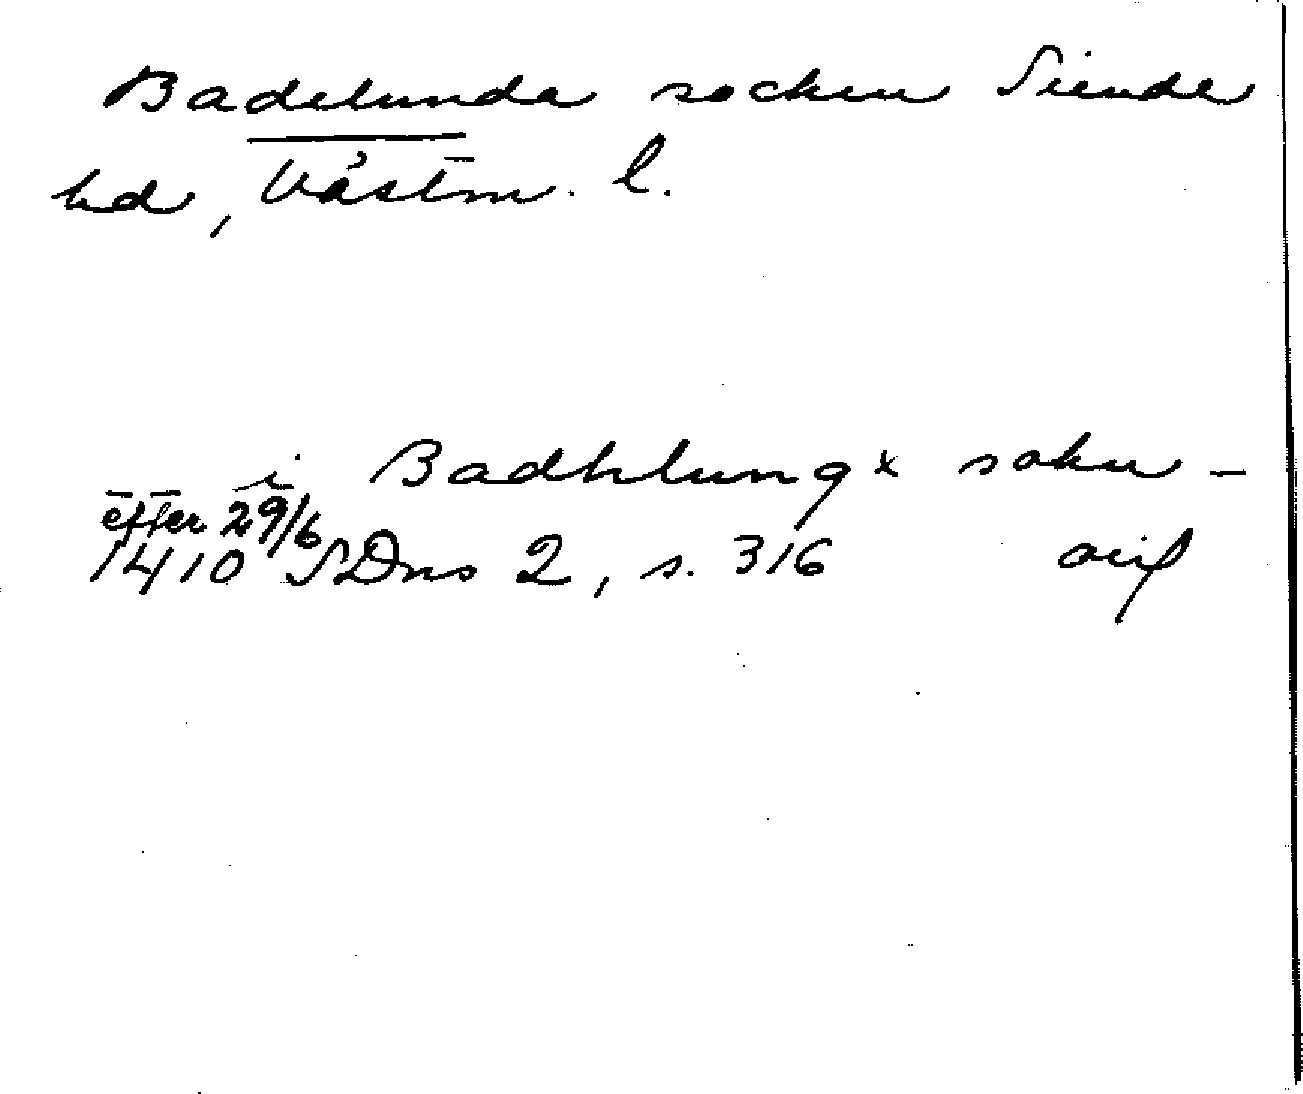 Badelunda socken Siende
hd, Västm. l.
i Badhlung x sokn –
efter 29/6
1410 SDns 2, s. 316